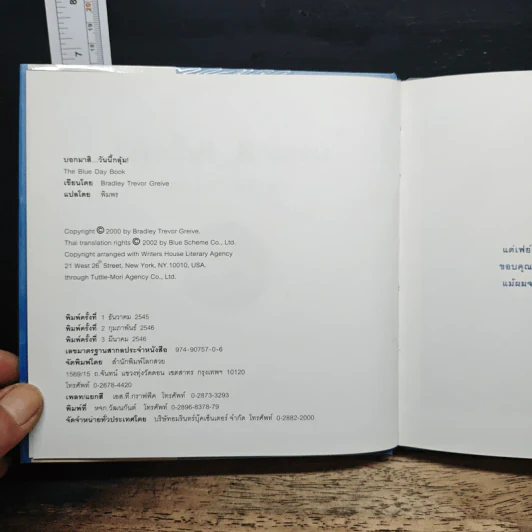 บอกมาสิ...วันนี้กลุ้ม!
The Blue Day Book
เขียนโดย Bradley Trevor Greive
แปลโดย พิมพร
Copyright © 2000 by Bradley Trevor Greive.
Thai translation rights © 2002 by Blue Scheme Co., Ltd.
Copyright arranged with Writers House Literary Agency
21 West 26th Street, New York, NY.10010, USA.
through Tuttle-Mori Agency Co., Ltd.
พิมพ์ครั้งที่ 1 ธันวาคม 2545
พิมพ์ครั้งที่ 2 กุมภาพันธ์ 2546
พิมพ์ครั้งที่ 3 มีนาคม 2546
เลขมาตรฐานสากลประจำหนังสือ 974-90757-0-6
จัดพิมพ์โดย สำนักพิมพ์โลกสวย
1569/15 ถ.จันทน์ แขวงทุ่งวัดดอน เขตสาทร กรุงเทพฯ 10120
โทรศัพท์ 0-2678-4420
เพลท/แยกสี เอส.ที.กราฟฟิค โทรศัพท์ 0-2873-3293
พิมพ์ที่ หจก.วัฒนกันต์ โทรศัพท์ 0-2896-8378-79
จัดจำหน่ายทั่วประเทศโดย บริษัทอมรินทร์บุ๊คเซ็นเตอร์ จำกัด โทรศัพท์ 0-2882-2000
ขอบคุณ
แม้ผมจ